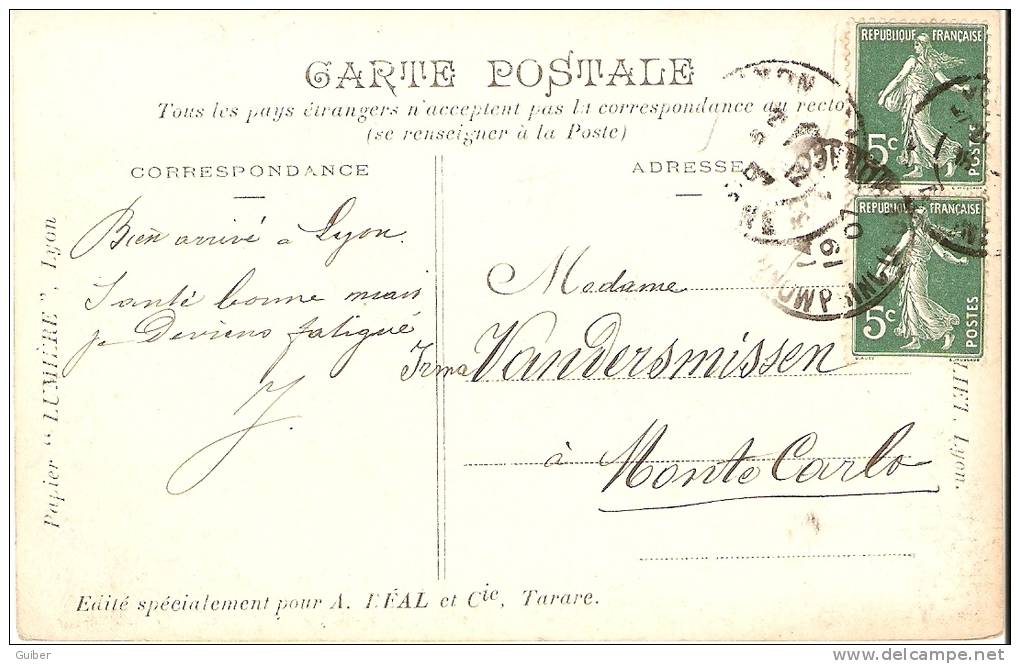 CARTE POSTALE
Tous les pays étrangers n'acceptent pas la correspondance au recto
(se renseigner à la Poste)
CORRESPONDANCE
Bien arrivé à Lyon.
Santé bonne mais
je deviens fatigué
J.
ADRESSE
Madame
Irma Vandersmissen
à Monte Carlo
REPUBLIQUE FRANÇAISE
5c
POSTES
REPUBLIQUE FRANÇAISE
5c
POSTES
Papier "LUMIÈRE", Lyon
Lyon.
Edité spécialement pour A. DÉAL et Cie, Tarare.
Guiber
www.delcampe.net